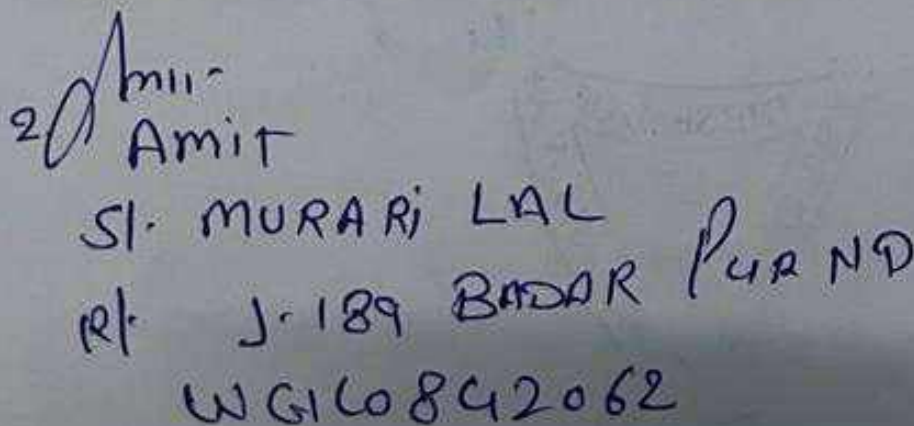 2) Amit
Amit
S/. MURARi LAL
R/. J-189 BADAR PUR ND
WGK0842062